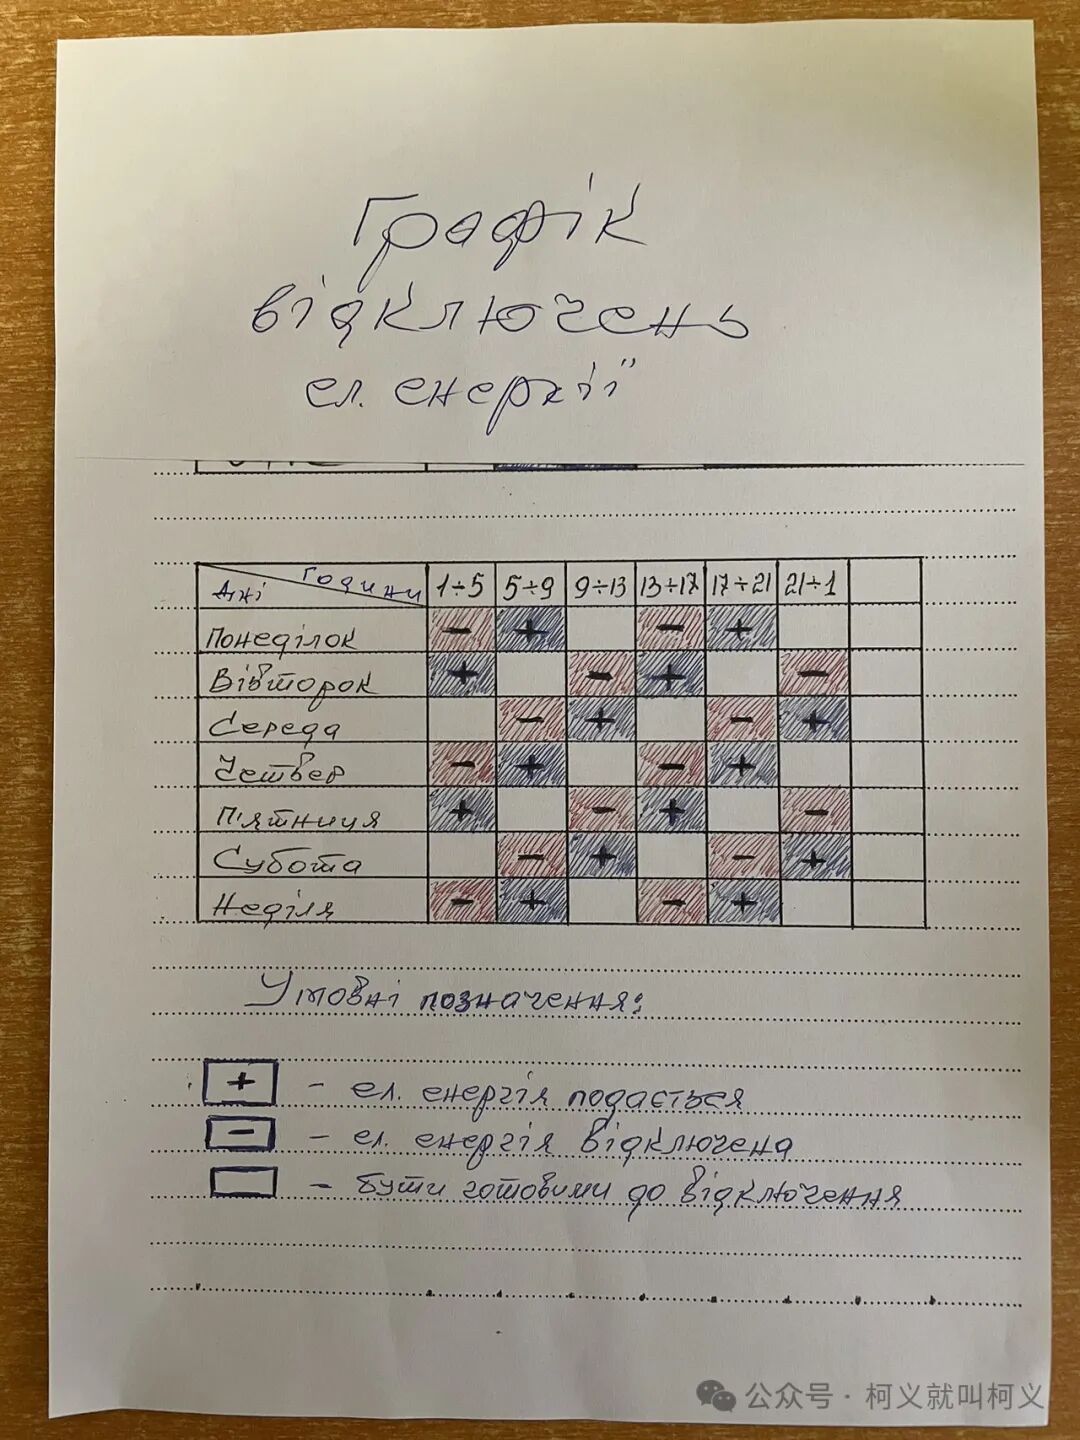 Графік
відключень
ел. енергії
Дні Години 1÷5 5÷9 9÷13 13÷17 17÷21 21÷1
Понеділок - + - +
Вівторок + - + -
Середа - + - +
Четвер - + - +
П'ятниця + - + -
Субота - + - +
Неділя - + - +
Умовні позначення:
+ - ел. енергія подається
- - ел. енергія відключена
- бути готовими до відключення
公众号 · 柯义就叫柯义